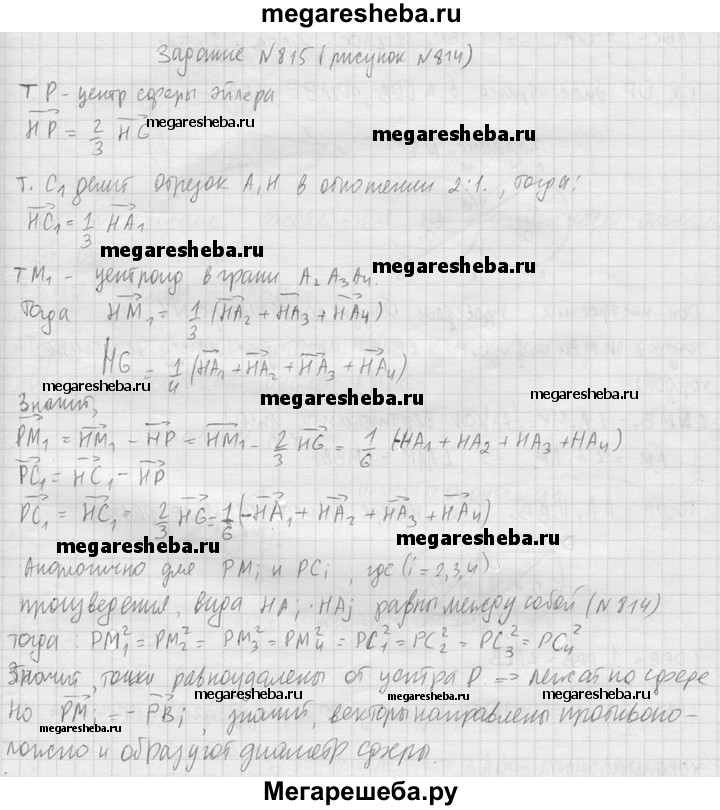 megaresheba.ru
Задание №815 (рисунок №814)
т P - центр сферы Эйлера
HP = 2/3 HG megaresheba.ru megaresheba.ru
т. C₁ делит отрезок A₁H в отношении 2:1., тогда:
HC₁ = 1/3 HA₁
megaresheba.ru megaresheba.ru
т M₁ - центроид в грани A₂A₃A₄.
Тогда HM₁ = 1/3 (HA₂ + HA₃ + HA₄)
HG = 1/4 (HA₁ + HA₂ + HA₃ + HA₄)
megaresheba.ru megaresheba.ru megaresheba.ru
Значит,
PM₁ = HM₁ - HP = HM₁ - 2/3 HG = 1/6 (-HA₁ + HA₂ + HA₃ + HA₄)
PC₁ = HC₁ - HP
PC₁ = HC₁ = 2/3 HG = 1/6 (-HA₁ + HA₂ + HA₃ + HA₄)
megaresheba.ru megaresheba.ru
Аналогично для PMi и PCi, где (i = 2,3,4)
произведения, вида HAi · HAj равны между собой (№814)
тогда: PM₁² = PM₂² = PM₃² = PM₄² = PC₁² = PC₂² = PC₃² = PC₄²
megaresheba.ru megaresheba.ru
Значит, точки равноудалены от центра P => лежат на сфере
megaresheba.ru megaresheba.ru
Но PMi = - PBi, значит, векторы направлены противопо-
ложно и образуют диаметр сферы.
Мегарешеба.ру